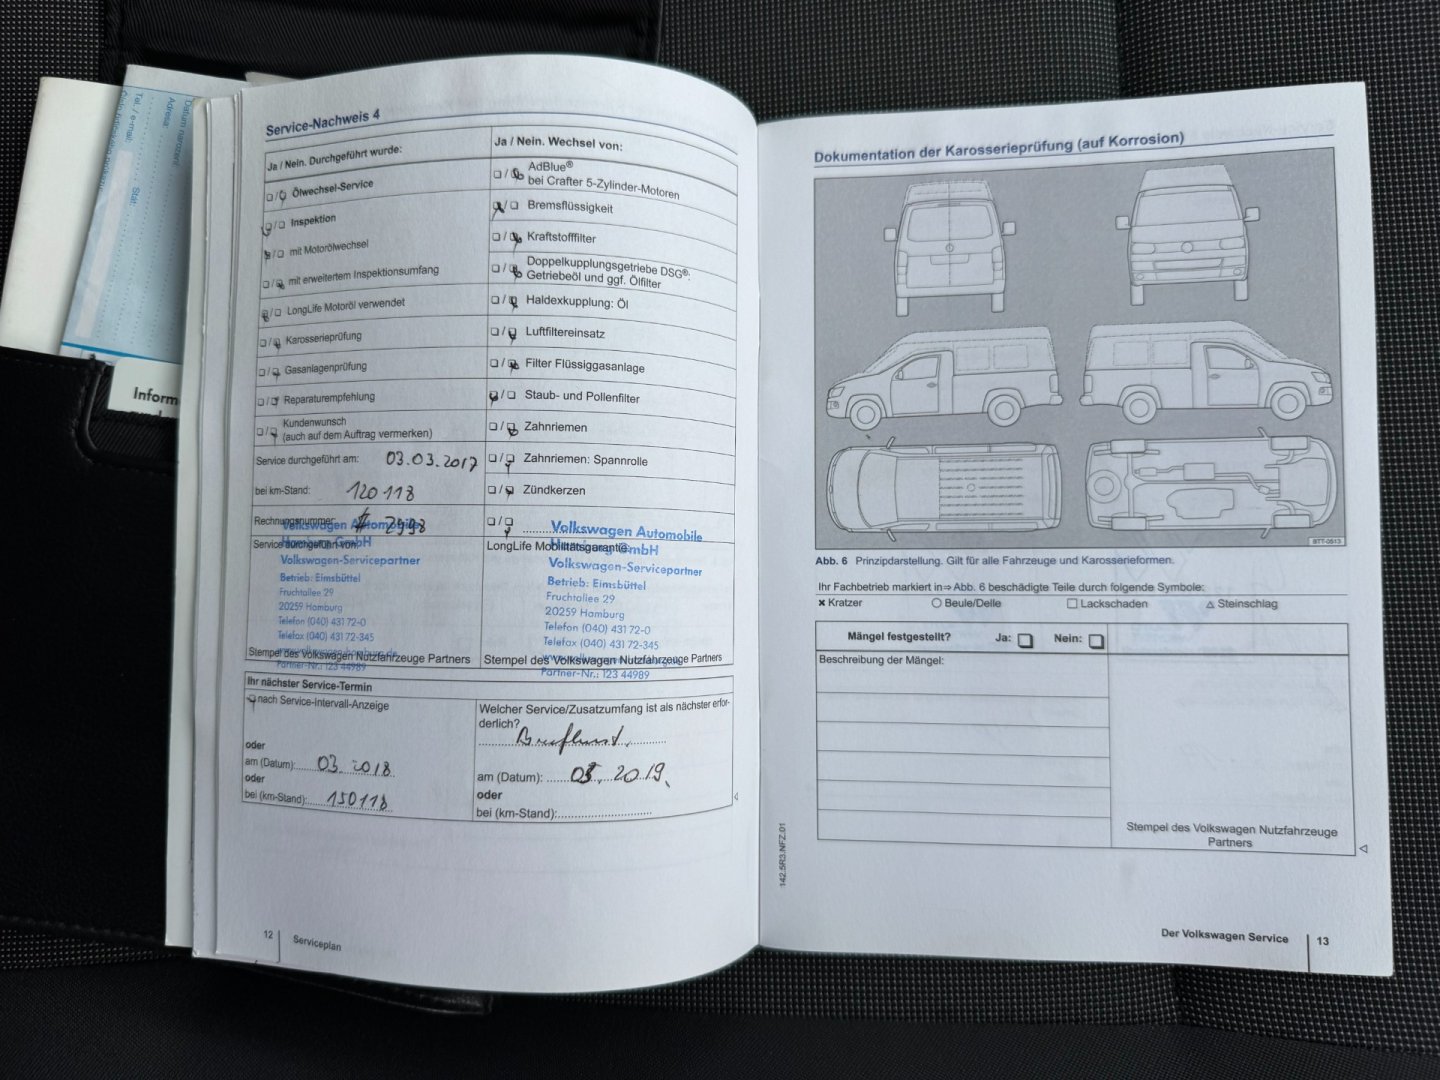 Datum narození:
Adresa:
Tel. / e-mail:
Stát:
Inform
Service-Nachweis 4
Ja / Nein. Durchgeführt wurde:
Ja / Nein. Wechsel von:
❏/❏ Ölwechsel-Service
❏/❏ Inspektion
❏/❏ mit Motorölwechsel
❏/❏ mit erweitertem Inspektionsumfang
❏/❏ LongLife Motoröl verwendet
❏/❏ Karosserieprüfung
❏/❏ Gasanlagenprüfung
❏/❏ Reparaturempfehlung
❏/❏ Kundenwunsch
(auch auf dem Auftrag vermerken)
❏/❏ AdBlue®
bei Crafter 5-Zylinder-Motoren
❏/❏ Bremsflüssigkeit
❏/❏ Kraftstofffilter
❏/❏ Doppelkupplungsgetriebe DSG®:
Getriebeöl und ggf. Ölfilter
❏/❏ Haldexkupplung: Öl
❏/❏ Luftfiltereinsatz
❏/❏ Filter Flüssiggasanlage
❏/❏ Staub- und Pollenfilter
❏/❏ Zahnriemen
❏/❏ Zahnriemen: Spannrolle
❏/❏ Zündkerzen
❏/❏
Service durchgeführt am: 03.03.2017
bei km-Stand: 120 118
Rechnungsnummer: # 2998
Service durchgeführt von:
Volkswagen Automobile
Hamburg GmbH
Volkswagen-Servicepartner
Betrieb: Eimsbüttel
Fruchtallee 29
20259 Hamburg
Telefon (040) 431 72-0
Telefax (040) 431 72-345
www.volkswagen-hamburg.de
Partner-Nr.: 123 44989
Stempel des Volkswagen Nutzfahrzeuge Partners
LongLife Mobilitätsgarantie:
Volkswagen Automobile
Hamburg GmbH
Volkswagen-Servicepartner
Betrieb: Eimsbüttel
Fruchtallee 29
20259 Hamburg
Telefon (040) 431 72-0
Telefax (040) 431 72-345
Partner-Nr.: 123 44989
Stempel des Volkswagen Nutzfahrzeuge Partners
Ihr nächster Service-Termin
❏ nach Service-Intervall-Anzeige
oder
am (Datum): 03. 2018
oder
bei (km-Stand): 150118
Welcher Service/Zusatzumfang ist als nächster erfor-
derlich?
am (Datum): 03. 2019
oder
bei (km-Stand):
12 Serviceplan
Dokumentation der Karosserieprüfung (auf Korrosion)
BTT-0513
Abb. 6 Prinzipdarstellung. Gilt für alle Fahrzeuge und Karosserieformen.
Ihr Fachbetrieb markiert in⇒ Abb. 6 beschädigte Teile durch folgende Symbole:
✖ Kratzer ○ Beule/Delle □ Lackschaden △ Steinschlag
Mängel festgestellt? Ja: ❏ Nein: ❏
Beschreibung der Mängel:
Stempel des Volkswagen Nutzfahrzeuge
Partners
142.5R3.NFZ.01
Der Volkswagen Service 13